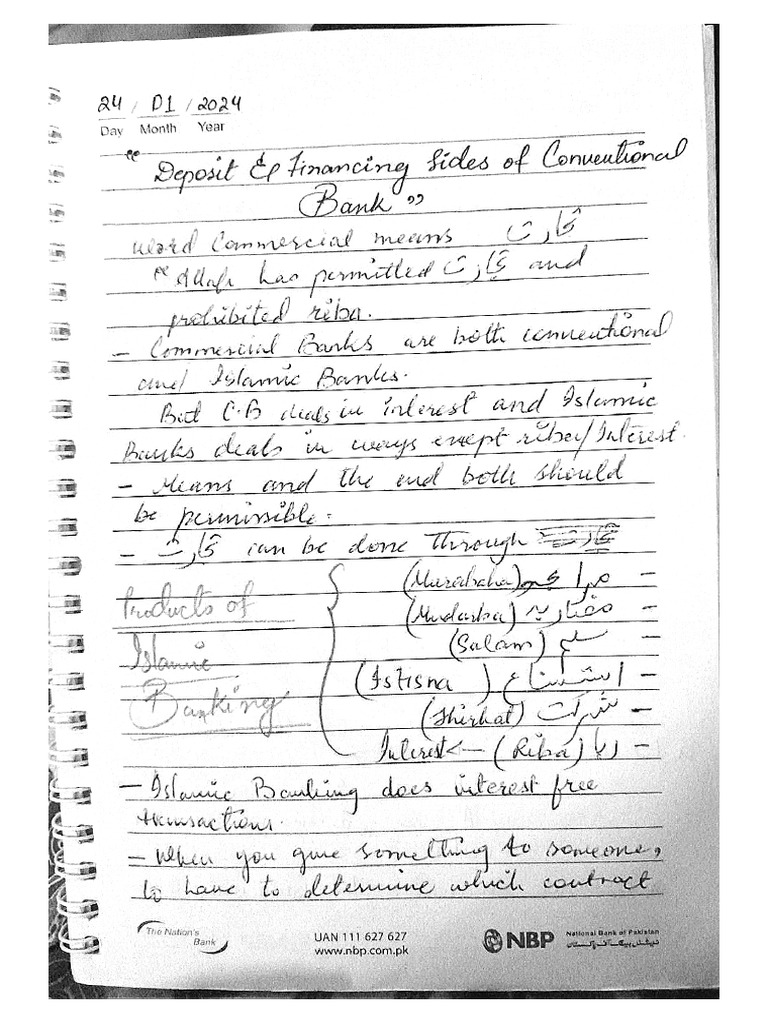 24 / 01 / 2024
Day Month Year
"Deposit & Financing Sides of Conventional
Bank"
Word Commercial means تجارت
"Allah has permitted تجارت and
prohibited riba.
- Commercial Banks are both conventional
and Islamic Banks.
But C.B deals in interest and Islamic
Banks deals in ways except riba/Interest.
- Means and the end both should
be permissible.
- تجارت can be done through
Products of
Islamic
Banking
- مرابحہ (Murabaha)
- مضاربہ (Mudarba)
- سلم (Salam)
- استسناع (Istisna)
- شرکت (Shirkat)
- ربا (Riba) -> Interest
- Islamic Banking does interest free
transactions.
- When you give something to someone,
to have to determine which contract
The Nation's
Bank
UAN 111 627 627
www.nbp.com.pk
NBP
National Bank of Pakistan
نیشنل بینک آف پاکستان